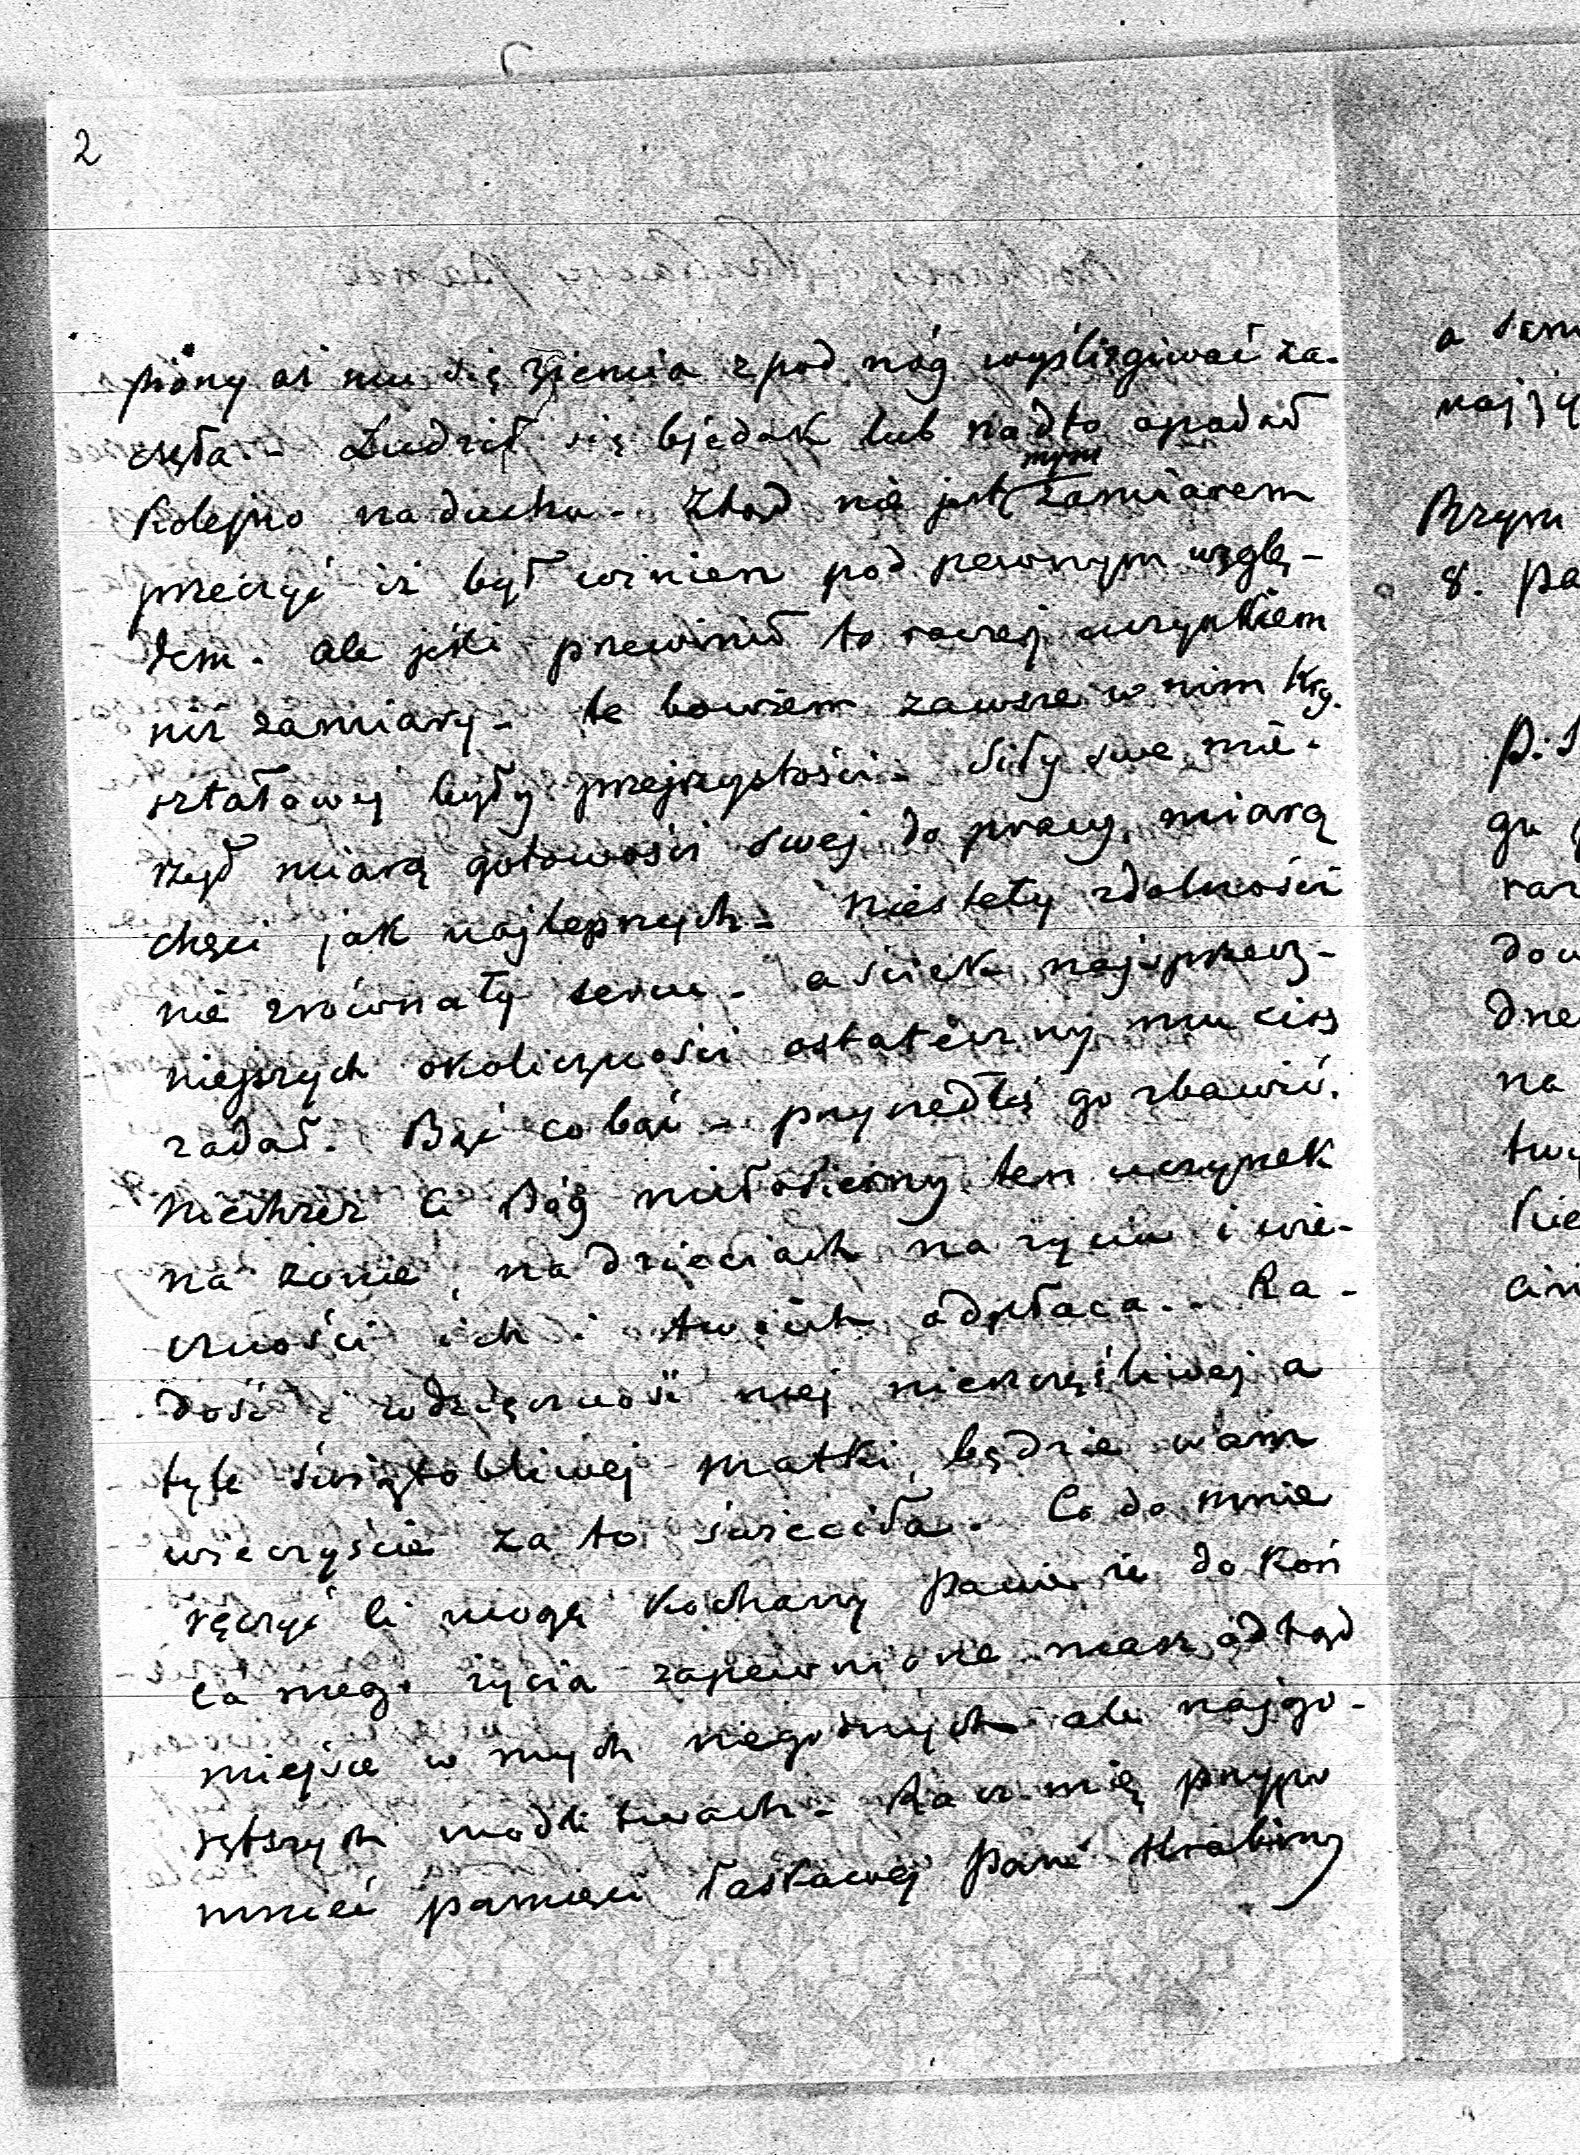 2
piony aż mu się ziemia z pod nóg wyślizgiwać za-
częła - Łudził się bjedak lub nadto opadał
kolejno na duchu - Ztąd nie jest mym zamiarem
przeczyć iż był winien pod pewnym wzglę-
dem. ale jeśli przewinił to raczej uczynkiem
niż zamiary - te bowiem zawsze w nim kry-
ształowej były przejrzystości - Siły swe mie-
rzył miarą gotowości swej do pracy, miarą
chęci jak najlepszych - Niestety zdolności
nie zrównały sercu - a ścisk najsprzecz-
niejszych okoliczności ostateczny mu cios
zadał. Bąć co bąć - przyszedłeś go zbawić.
Niechże Ci Bóg miłosierny ten uczynek
na żonie, na dzieciach na życiu i wie-
czności ich i twoich odpłaca - Ra-
dość i wdzięczność mej nieszczęśliwej a
tyle świątobliwej matki, będzie wam
wieczyście za to świeciła. Co do mnie
ręczyć Ci mogę kochany Panie że do koń
ca mego życia zapewnione masz odtąd
miejsce w mych niegodnych ale najgo-
rętszych modlitwach - Racz mię przypo
mnieć pamięci łaskawej Pani Hrabiny
a
Rzym
8. Pa
P. S
gu
raz
dne
na